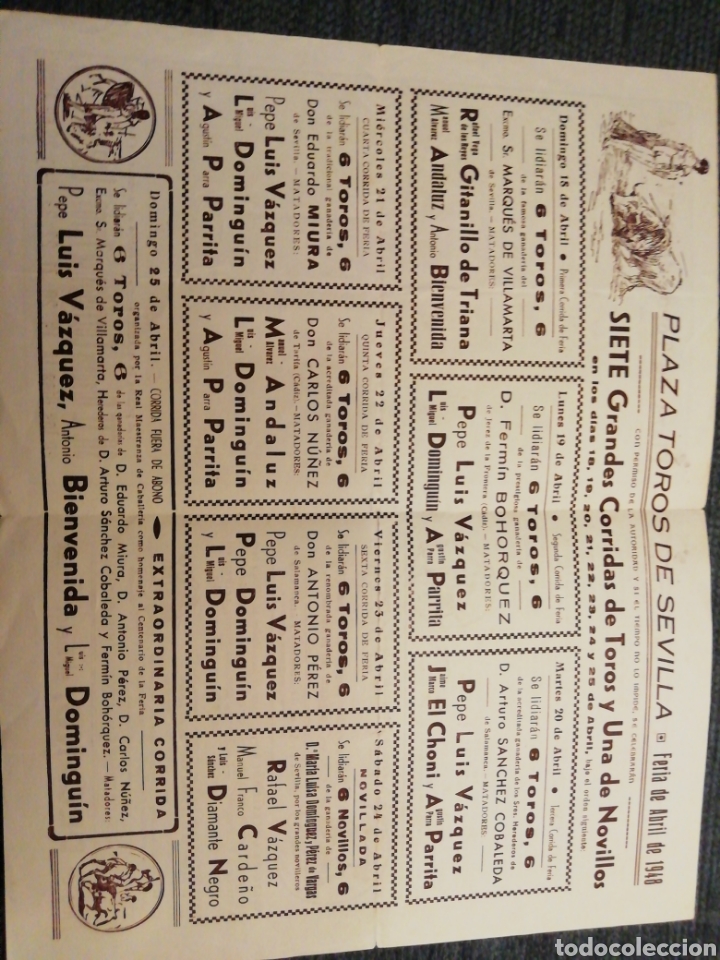 PLAZA TOROS DE SEVILLA Feria de Abril de 1948
CON PERMISO DE LA AUTORIDAD Y SI EL TIEMPO NO LO IMPIDE SE CELEBRARÁN
SIETE Grandes Corridas de Toros y Una de Novillos
en los días 18, 19, 20, 21, 22, 23, 24 y 25 de Abril, bajo el orden siguiente:
Domingo 18 de Abril • Primera Corrida de Feria
Se lidiarán 6 Toros, 6
de la famosa ganadería del
Excmo. Sr. MARQUÉS DE VILLAMARTA
de Sevilla.—MATADORES:
Rafael Vega de los Reyes Gitanillo de Triana
Manuel Alvarez Andaluz y Antonio Bienvenida
Lunes 19 de Abril • Segunda Corrida de Feria
Se lidiarán 6 Toros, 6
de la prestigiosa ganadería de
D. Fermín BOHORQUEZ
de Jerez de la Frontera (Cádiz).—MATADORES:
Pepe Luis Vázquez
Luis Miguel Dominguín y Agustín Parra Parrita
Martes 20 de Abril • Tercera Corrida de Feria
Se lidiarán 6 Toros, 6
de la acreditada ganadería de los Sres. Herederos de
D. Arturo SÁNCHEZ COBALEDA
de Salamanca.—MATADORES:
Pepe Luis Vázquez
Jaime Marco El Choni y Agustín Parra Parrita
Miércoles 21 de Abril
CUARTA CORRIDA DE FERIA
Se lidiarán 6 Toros, 6
de la tradicional ganadería de
Don Eduardo MIURA
de Sevilla.—MATADORES:
Pepe Luis Vázquez
Luis Miguel Dominguín
y Agustín Parra Parrita
Jueves 22 de Abril
QUINTA CORRIDA DE FERIA
Se lidiarán 6 Toros, 6
de la acreditada ganadería de
Don CARLOS NÚÑEZ
de Tarifa (Cádiz).—MATADORES:
Manuel Alvarez Andaluz
Luis Miguel Dominguín
y Agustín Parra Parrita
Viernes 23 de Abril
SEXTA CORRIDA DE FERIA
Se lidiarán 6 Toros, 6
de la renombrada ganadería de
Don ANTONIO PÉREZ
de Salamanca. MATADORES:
Pepe Luis Vázquez
Pepe Dominguín
y Luis Miguel Dominguín
Sábado 24 de Abril
NOVILLADA
Se lidiarán 6 Novillos, 6
de la ganadería de
D.ª María Luisa Domínguez y Pérez de Vargas
de Sevilla, por los grandes novilleros
Rafael Vázquez
Manuel Franco Cardeño
y Luis Sánchez Diamante Negro
Domingo 25 de Abril.—CORRIDA FUERA DE ABONO EXTRAORDINARIA CORRIDA
organizada por la Real Maestranza de Caballería como homenaje al Centenario de la Feria
Se lidiarán 6 Toros, 6 de las ganaderías de D. Eduardo Miura, D. Antonio Pérez, D. Carlos Núñez,
Excmo. S. Marqués de Villamarta, Herederos de D. Arturo Sánchez Cobaleda y Fermín Bohórquez.—Matadores:
Pepe Luis Vázquez, Antonio Bienvenida y Luis Miguel Dominguín
todocoleccion